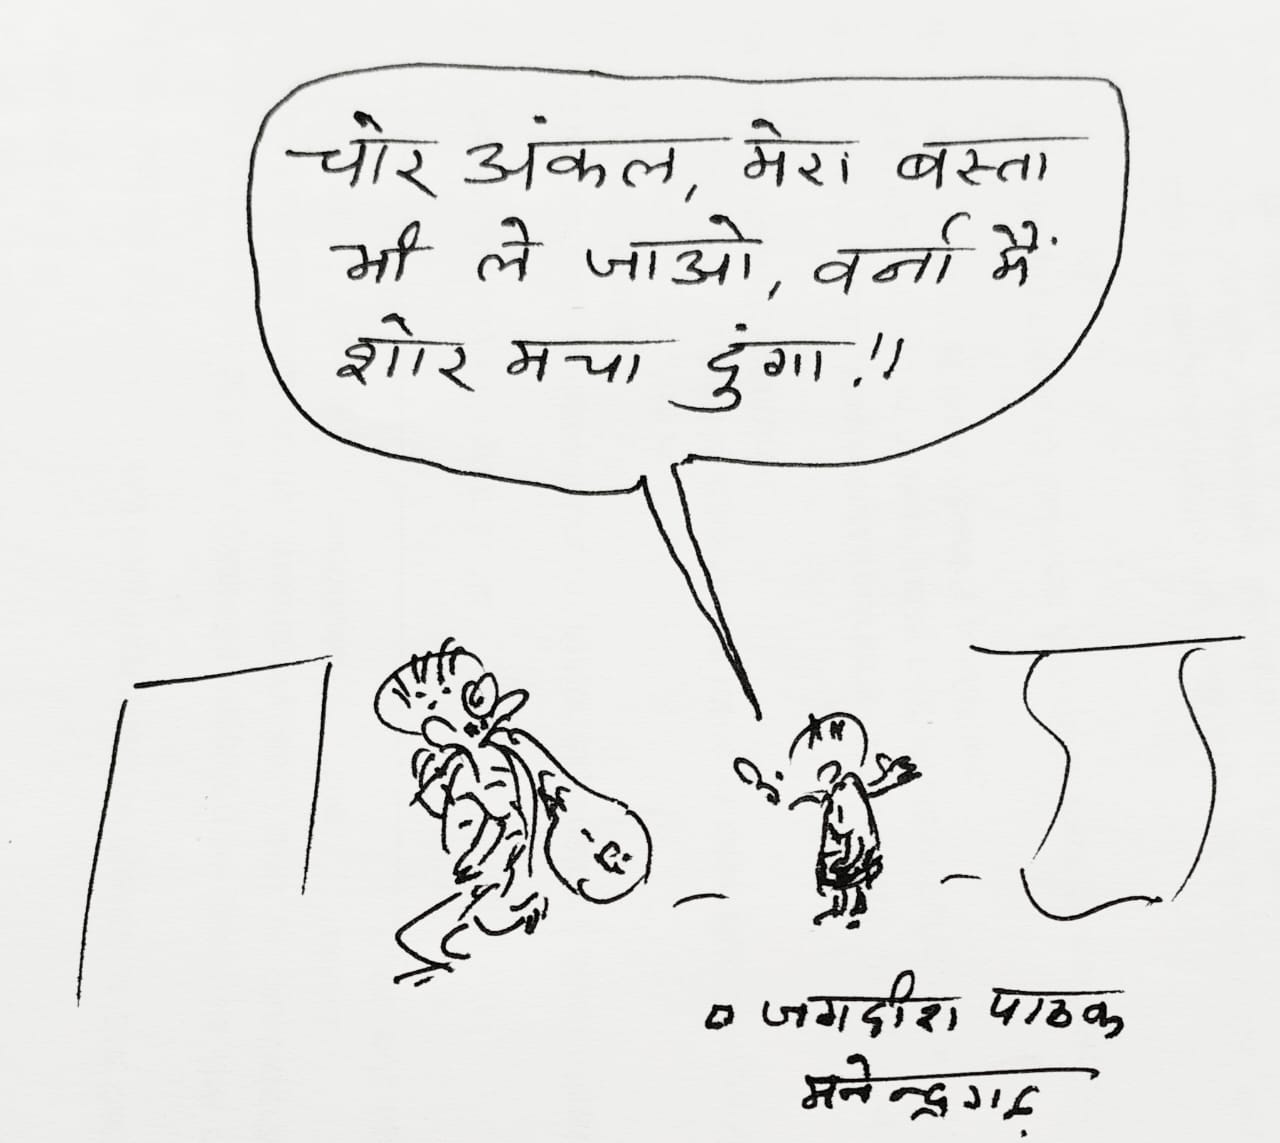 चोर अंकल, मेरा बस्ता
भी ले जाओ, वर्ना मैं
शोर मचा दुंगा!!
जगदीश पाठक
मनेन्द्रगढ़